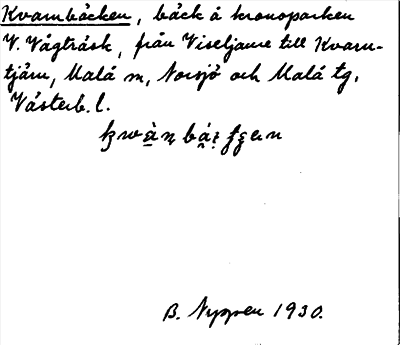 Kvarnbäcken, bäck å kronoparken
V. Vågträsk, från Viseljaure till Kvarn-
tjärn, Malå sn, Norsjö och Malå tg,
Västerb. l.
B. Nyppen 1930.